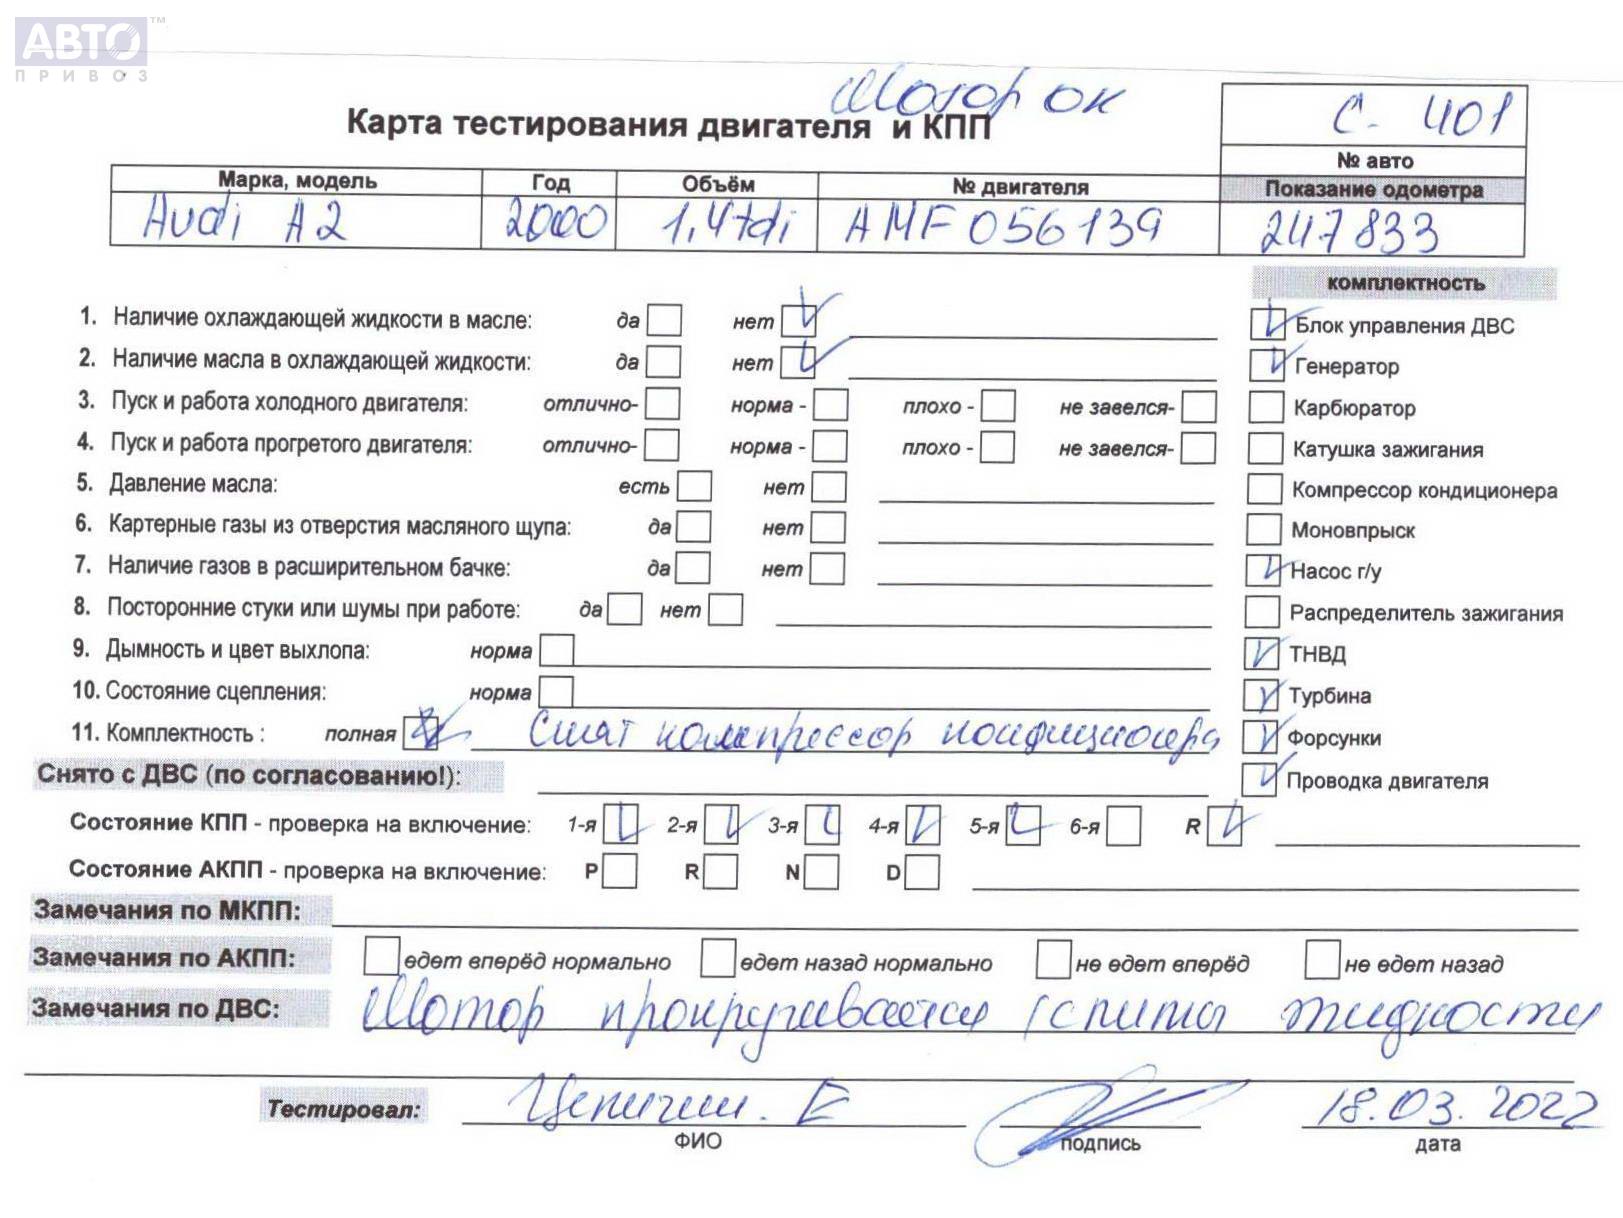 АВТО™
ПРИВОЗ
Мотор ок
Карта тестирования двигателя и КПП
С- 401
№ авто
Марка, модель Год Объём № двигателя Показание одометра
Audi A2 2000 1,4tdi AMF 056139 247833
комплектность
1. Наличие охлаждающей жидкости в масле: да нет
Блок управления ДВС
2. Наличие масла в охлаждающей жидкости: да нет
Генератор
3. Пуск и работа холодного двигателя: отлично- норма - плохо - не завелся-
Карбюратор
4. Пуск и работа прогретого двигателя: отлично- норма - плохо - не завелся-
Катушка зажигания
5. Давление масла: есть нет
Компрессор кондиционера
6. Картерные газы из отверстия масляного щупа: да нет
Моновпрыск
7. Наличие газов в расширительном бачке: да нет
Насос г/у
8. Посторонние стуки или шумы при работе: да нет
Распределитель зажигания
9. Дымность и цвет выхлопа: норма
ТНВД
10. Состояние сцепления: норма
Турбина
11. Комплектность : полная Снят компрессор кондиционера
Форсунки
Снято с ДВС (по согласованию!):
Проводка двигателя
Состояние КПП - проверка на включение: 1-я 2-я 3-я 4-я 5-я 6-я R
Состояние АКПП - проверка на включение: P R N D
Замечания по МКПП:
Замечания по АКПП: едет вперёд нормально едет назад нормально не едет вперёд не едет назад
Замечания по ДВС: Мотор прокручивается жидкости
Тестировал: Е 18.03.2022
ФИО подпись дата